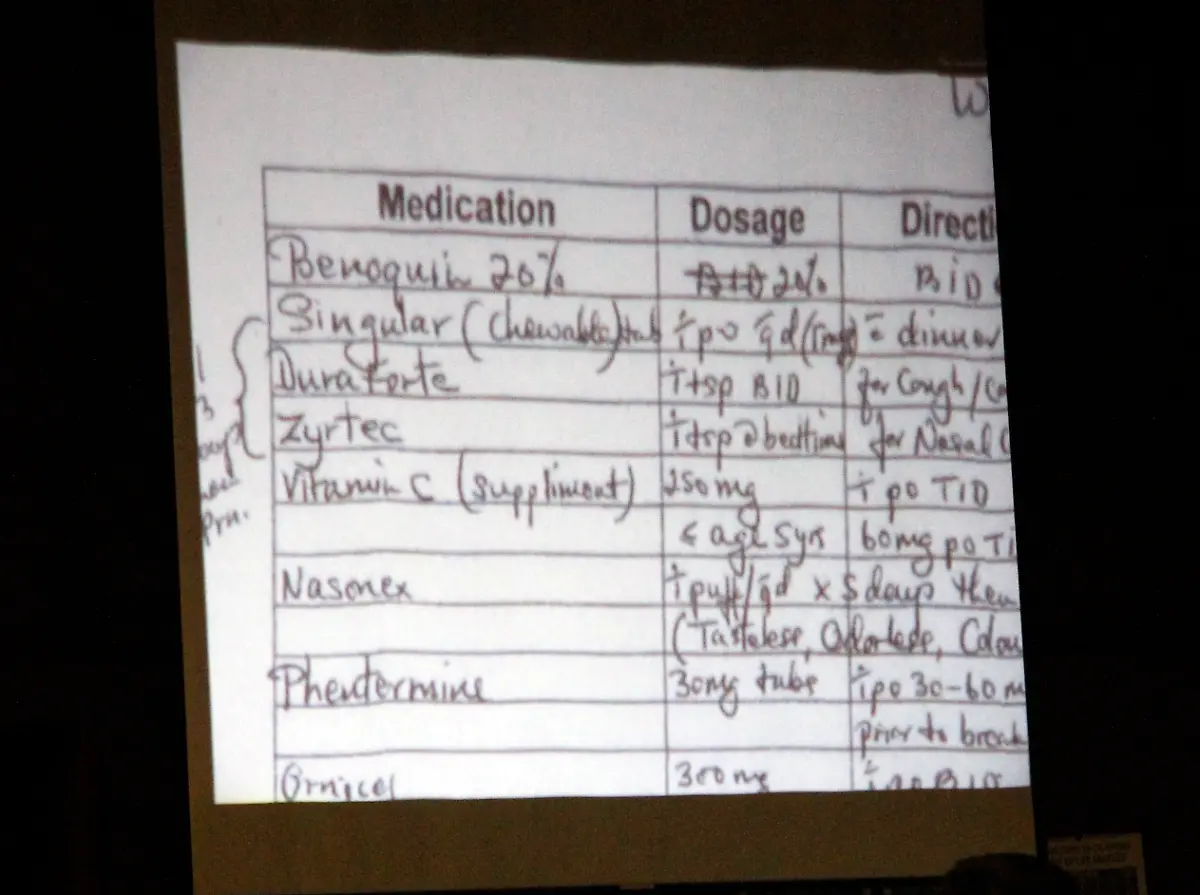 W
Medication Dosage Directi
Benoquin 20% 20% BiD
Singular (Chewable) tab i po qd = dinner
Dura Forte i tsp BID for Cough/Co
Zyrtec i tsp @ bedtime for Nasal C
Vitamin C (suppliment) 250mg i po TID
≤ age 5yrs 60mg po Ti
Nasonex i puff/qd x 5 days then
(Tasteless, Odorless, Colou
Phentermine 30mg tube i po 30-60 m
prior to break
300mg i po BID
prn.